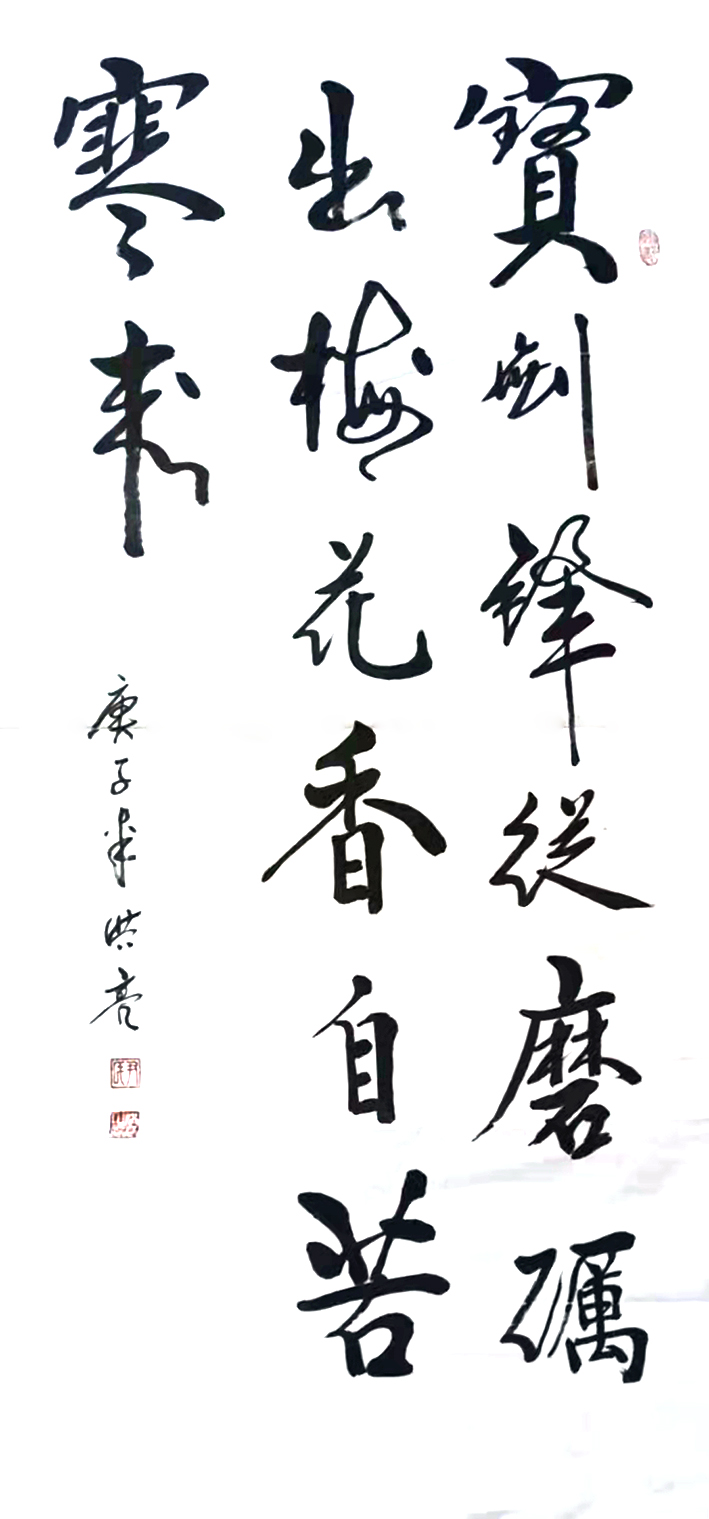 寶劍鋒從磨礪
出梅花香自苦
寒來
庚子年洪亮